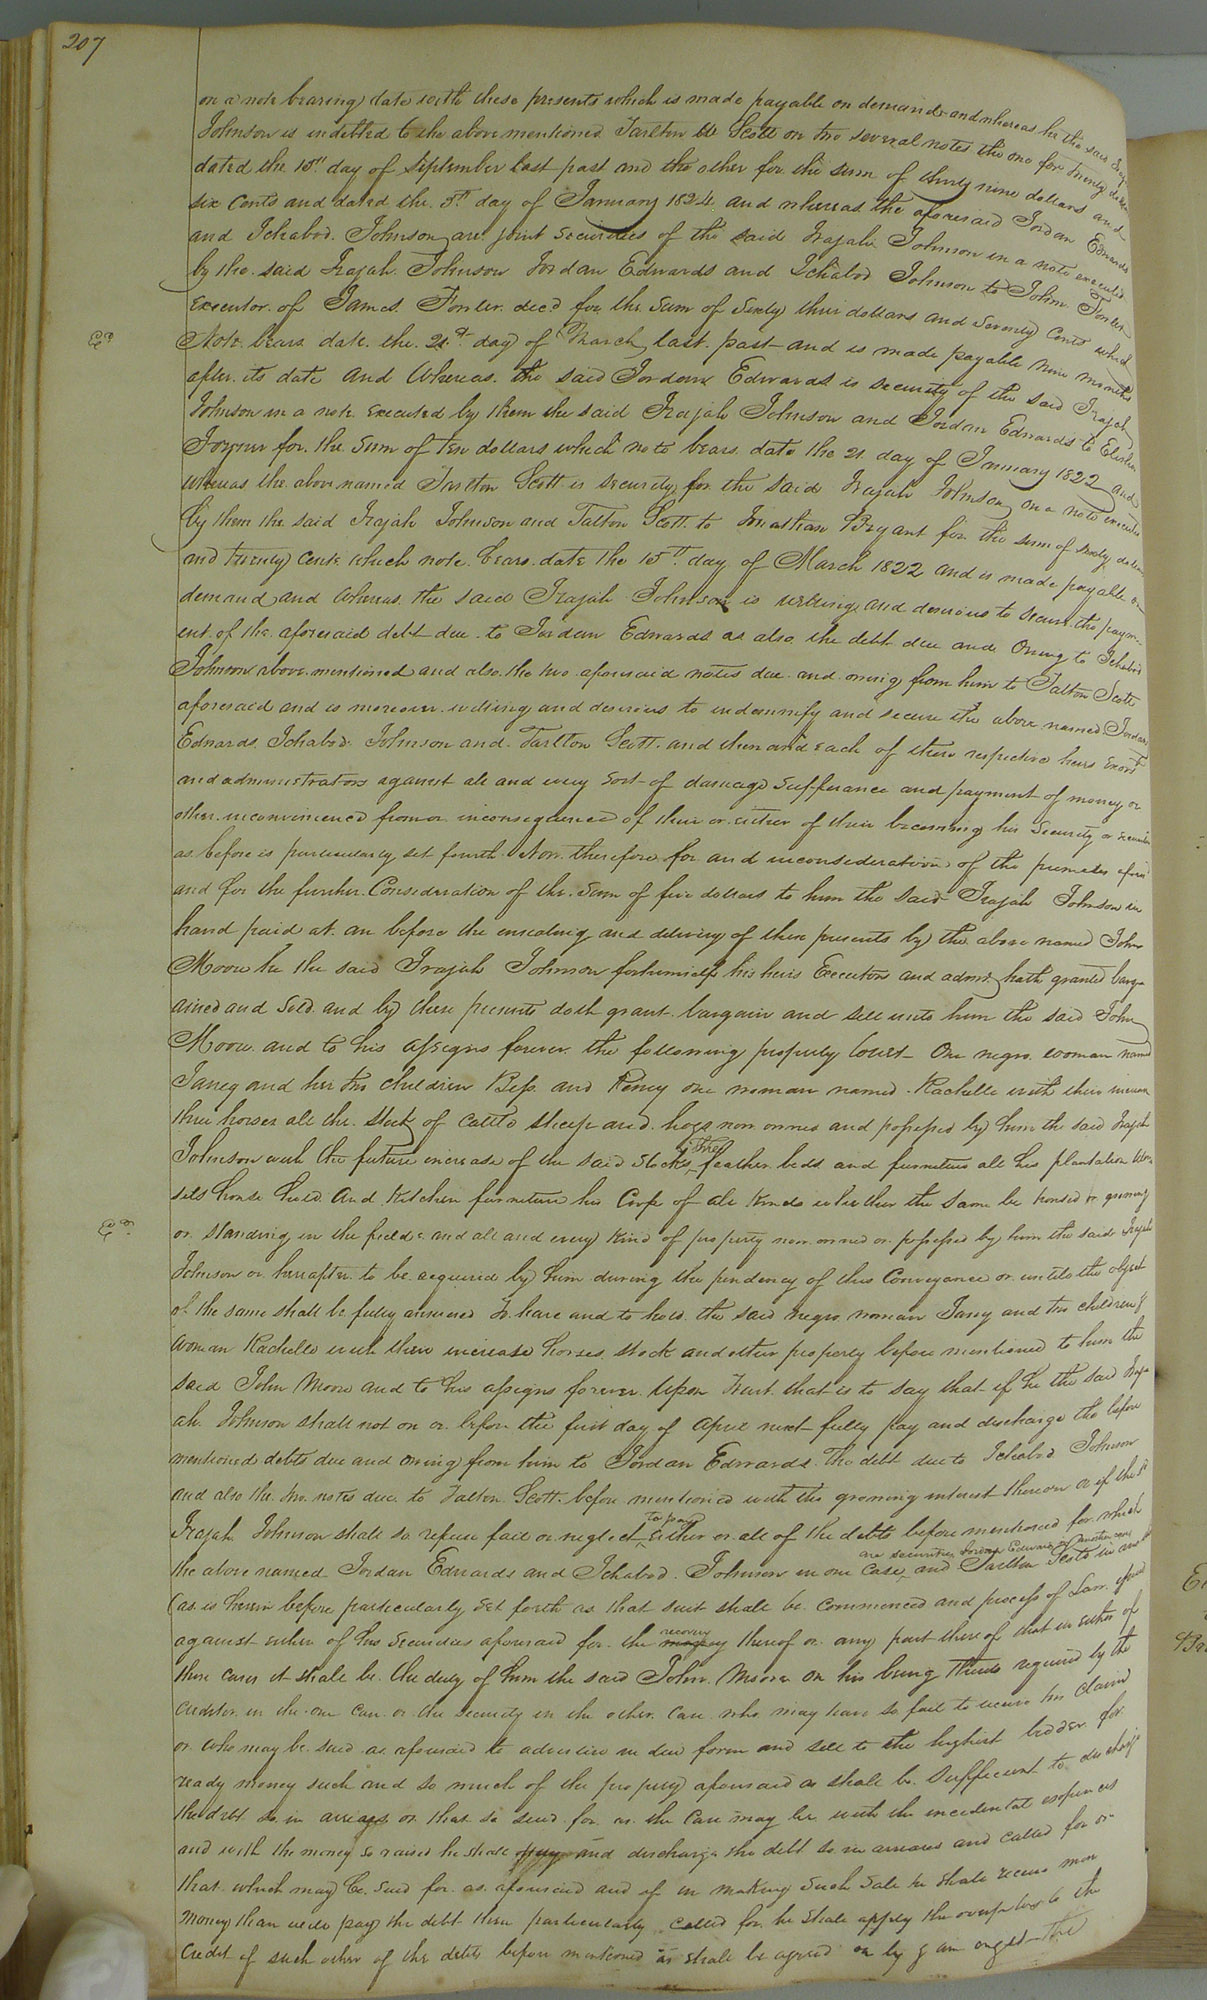 207
on a note bearing date with these presents which is made payable on demand and whereas he the said
Johnson is indebted to the above mentioned Tarlton W Scott on two several notes the one for twenty
dated the 10th day of September last past and the other for the sum of thirty nine dollars and
six Cents and dated the 5th day of January 1824 and whereas the aforesaid Jordan Edwards
and Ichabod Johnson are joint securities of the said Irajah Johnson in a note executed
by the said Irajah Johnson Jordan Edwards and Ichabod Johnson to John
Executor of James decd for the sum of Sixty three dollars and Seventy Cents which
Note bears date the 21st day of March last past and is made payable nine months
after its date and Whereas the said Jordan Edwards is security of the said Irajah
Johnson in a note executed by them the said Irajah Johnson and Jordan Edwards to Elisha
Joyner for the Sum of ten dollars which note bears date the 21 day of January 1822 and
whereas the above named Tarlton Scott is security for the said Irajah Johnson on a note executed
by them the said Irajah Johnson and Talton Scott to Jonathan Bryant for the sum of sixty
and twenty Cents which note bears date the 15th day of March 1822 and is made payable on
demand and Whereas the said Irajah Johnson is willing and desirous to secure the paym-
ent of the aforesaid debt due to Jordan Edwards as also the debt due and Owing to Ichabod
Johnson above mentioned and also the two aforesaid notes due and owing from him to Talton Scott
aforesaid and is moreover willing and desirous to indemnify and secure the above named Jordan
Edwards Ichabod Johnson and Tarlton Scott and them and each of their respective heirs Exors
and administrators against all and every sort of damage Sufferance and payment of money or
other inconvenience from or inconsequence of their or either of their becoming his Security or
as before is particularly set fourth Now therefore for and inconsideration of the premises
and for the further Consideration of the Sum of five dollars to him the said Irajah Johnson in
hand paid at an before the ensealing and delivery of these presents by the above named John
Moore he the said Irajah Johnson forhimself his heirs Executors and admrs hath granted barg-
ained and Sold and by these presents doth grant bargain and sell unto him the said John
Moore and to his assigns forever the following property towit One negro woman named
Janey and her two children Bess and one woman named Rachelle with their increase
three horses all the Stock of Cattle Sheep and hogs now owned and possessed by him the said Irajah
Johnson with the future increase of the said Stocks The feather beds and furniture all his plantation
house hold And Kitchen furniture his Crops of all Kinds whether the Same be housed or growing
Eo.
or Standing in the fields and all and every Kind of property now owned or possessed by him the said Irajah
Johnson or hereafter to be acquired by him during the pendency of this Conveyance or untill the object
of the same shall be fully answered To have and to hold the said negro woman Janey and two children
Woman Rachelle with their increase horses Stock and other property before mentioned to him the
said John Moore and to his assigns forever Upon Trust that is to say that if he the said Iraj-
ah Johnson shall not on or before the first day of April next fully pay and discharge the before
mentioned debts due and owing from him to Jordan Edwards The debt due to Ichabod Johnson
and also the two notes due to Talton Scott before mentioned with the growing interest thereon or if the sd
Irajah Johnson shall so refuse fail or neglect to pay Either or all of the debts before mentioned for which
the above named Jordan Edwards and Ichabod Johnson in one Case are securities Jordan Edwards in another case and Tarlton Scott in
(as is herein before particularly set forth as that suit shall be Commenced and process of Law
against either of his Securities aforesaid for the recovery thereof or any part thereof that in either of
these cases it shall be the duty of him the said John Moore on his being required by the
Creditor in the one Case or the security in the other Case who may have so fail to secure his claim
or who may be sued as aforesaid to advertise in due form and sell to the highest bidder for
ready money such and so much of the property aforesaid as shall be Sufficient to discharge
the debt So in arrears or that so sued for as the Case may be with the incidental expences
and with the money so raised he shall and discharge the debt so in arrears and called for or
that which may be sued for as aforesaid and if in making Such Sale he shall receive more
Money than will pay the debt then particularly called for he shall apply the overplus to the
Credit of such other of the debts before mentioned as shall be agreed on by